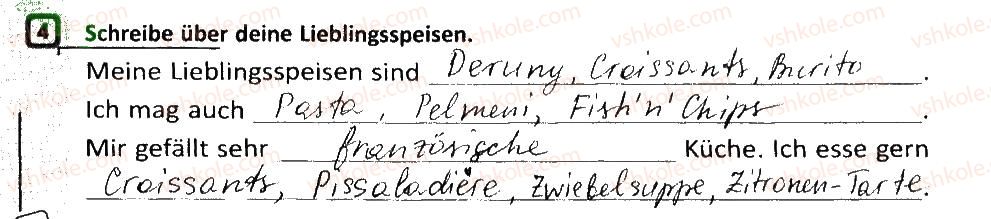 4 Schreibe über deine Lieblingsspeisen.
Meine Lieblingsspeisen sind Deruny, Croissants, Burito.
Ich mag auch Pasta, Pelmeni, Fish'n'Chips.
Mir gefällt sehr französische Küche. Ich esse gern
Croissants, Pissaladiére, Zwiebelsuppe, Zitronen-Tarte.